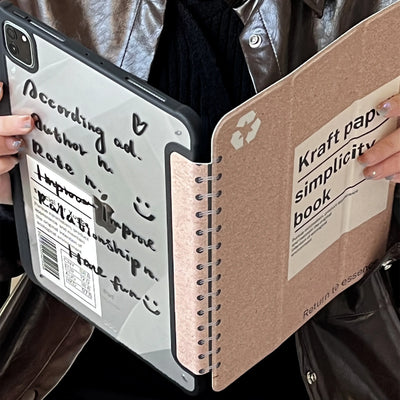 According ad.
Author n.
Rate n.
Improve
Relationship n.
Have fun
Kraft pap
simplicity
book
Return to essence